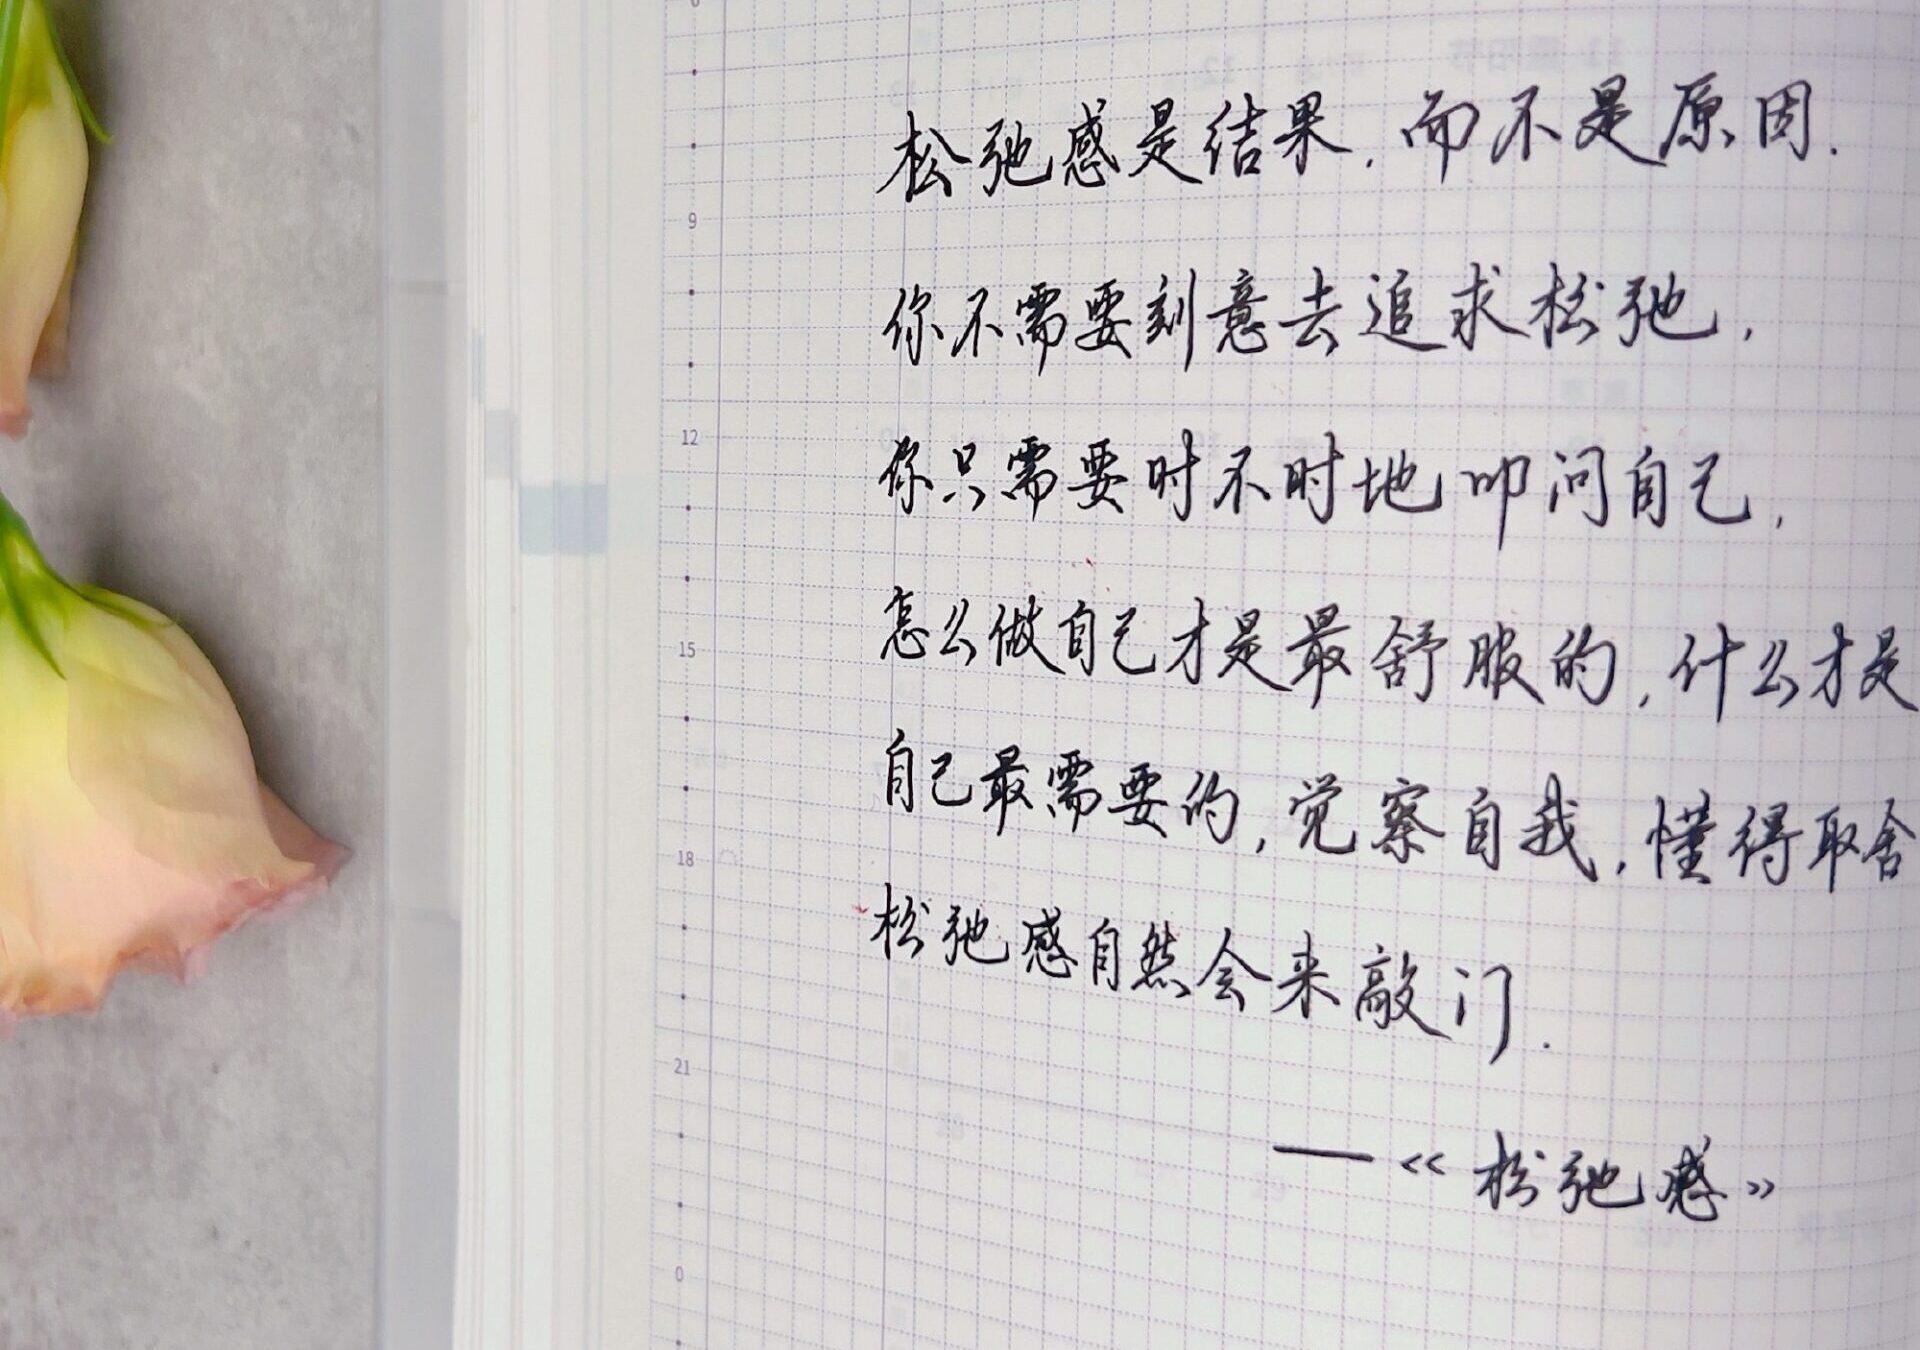 松弛感是结果,而不是原因.
9
你不需要刻意去追求松弛,
12
你只需要时不时地叩问自己,
15
怎么做自己才是最舒服的,什么才是
自己最需要的,觉察自我,懂得取舍
18
松弛感自然会来敲门.
21
——《松弛感》
0